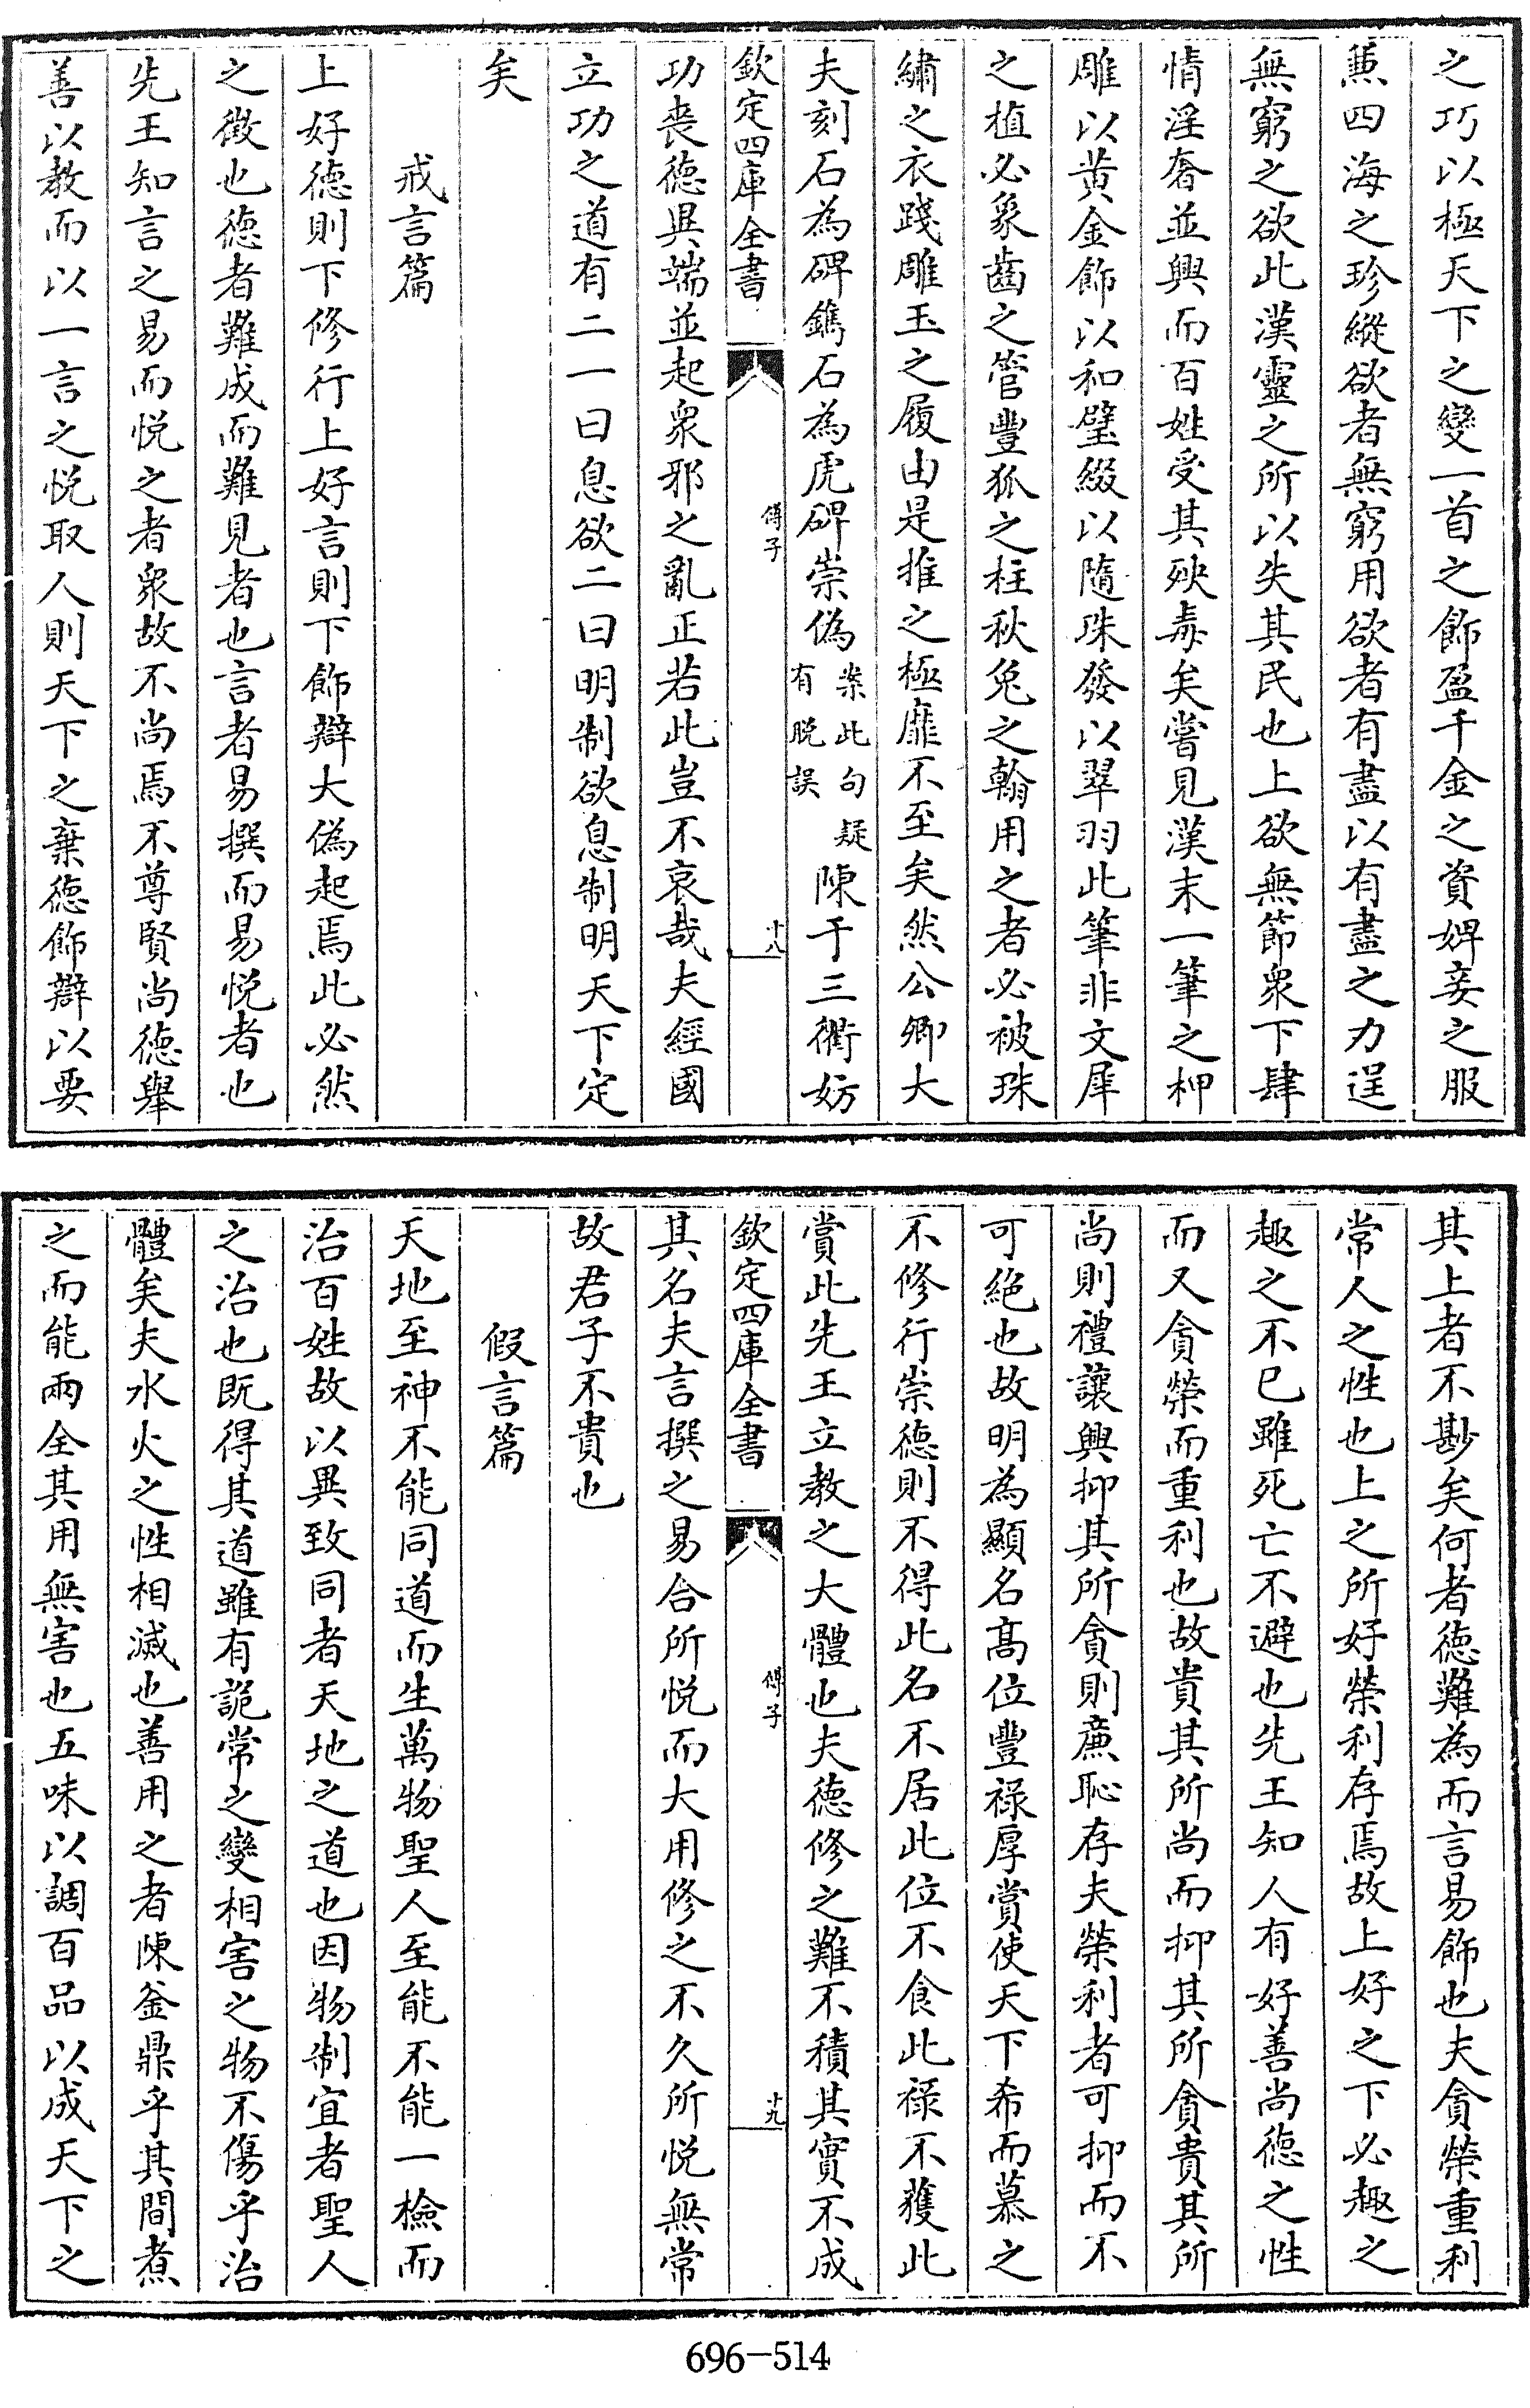 之巧以極天下之變一首之飾盈千金之資婢妾之服
蕙四海之珍縱欲者無窮用欲者有盡以有盡之力逞
無窮之欲此漢靈之所以失其民也上欲無節衆下肆
情淫奢並興而百姓受其殃毒矣嘗見漢末一筆之柙
雕以黄金飾以和璧綴以隨珠發以翠羽此筆非文犀
之植必象齒之管豐狐之柱秋兔之翰用之者必被珠
繡之衣踐雕玉之履由是推之極靡不至矣然公卿大
夫刻石為碑鐫石為虎碑崇偽案此句疑有脱誤陳于三衢妨
欽定四庫全書
傅子
十八
功喪德異端並起衆邪之亂正若此豈不哀哉夫經國
立功之道有二一曰息欲二曰明制欲息制明天下定
矣
戒言篇
上好德則下修行上好言則下飾辯大偽起焉此必然
之徵也德者難成而難見者也言者易撰而易悦者也
先王知言之易而悦之者衆故不尚焉不尊賢尚德舉
善以教而以一言之悦取人則天下之棄德飾辯以要
其上者不尠矣何者德難為而言易飾也夫貪榮重利
常人之性也上之所好榮利存焉故上好之下必趣之
趣之不已雖死亡不避也先王知人有好善尚德之性
而又貪榮而重利也故貴其所尚而抑其所貪貴其所
尚則禮讓興抑其所貪則亷恥存夫榮利者可抑而不
可絶也故明為顯名髙位豐禄厚賞使天下希而慕之
不修行崇德則不得此名不居此位不食此禄不獲此
賞此先王立教之大體也夫德修之難不積其實不成
欽定四庫全書
傅子
十九
其名夫言撰之易合所悦而大用修之不久所悦無常
故君子不貴也
假言篇
天地至神不能同道而生萬物聖人至能不能一檢而
治百姓故以異致同者天地之道也因物制宜者聖人
之治也既得其道雖有詭常之變相害之物不傷乎治
體矣夫水火之性相滅也善用之者陳釜鼎乎其間煮
之而能兩全其用無害也五味以調百品以成天下之
696-514